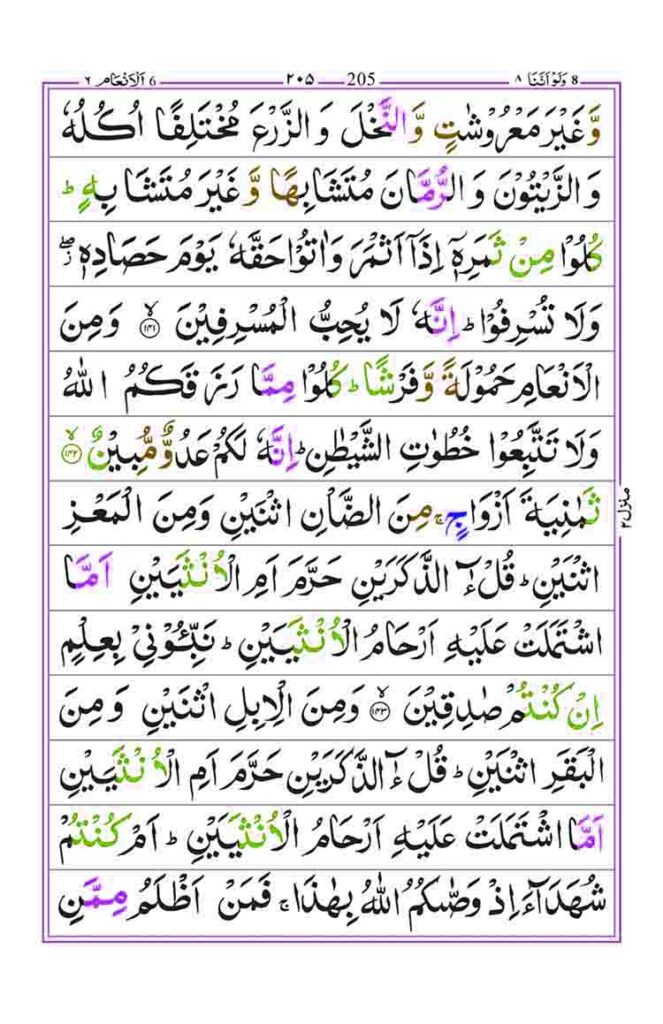 8 وَلَوْ اَنَّنَا ٨ 205 ٢٠٥ 6 اَلْاَنْعَام ٦
وَّ غَيْرَ مَعْرُوْشٰتٍ وَّ النَّخْلَ وَ الزَّرْعَ مُخْتَلِفًا اُكُلُهٗ
وَ الزَّيْتُوْنَ وَ الرُّمَّانَ مُتَشَابِهًا وَّ غَيْرَ مُتَشَابِهٍ ؕ
كُلُوْا مِنْ ثَمَرِهٖۤ اِذَاۤ اَثْمَرَ وَ اٰتُوْا حَقَّهٗ يَوْمَ حَصَادِهٖ ۖ٘
وَلَا تُسْرِفُوْا ؕ اِنَّهٗ لَا يُحِبُّ الْمُسْرِفِيْنَ ﴿١٤١﴾ۙ وَ مِنَ
الْاَنْعَامِ حَمُوْلَةً وَّ فَرْشًا ؕ كُلُوْا مِمَّا رَزَقَكُمُ اللّٰهُ
وَلَا تَتَّبِعُوْا خُطُوٰتِ الشَّيْطٰنِ ؕ اِنَّهٗ لَكُمْ عَدُوٌّ مُّبِيْنٌ ﴿١٤٢﴾ۙ
ثَمٰنِيَةَ اَزْوَاجٍ ۚ مِنَ الضَّاْنِ اثْنَيْنِ وَمِنَ الْمَعْزِ
اثْنَيْنِ ؕ قُلْ ءٰٓالذَّكَرَيْنِ حَرَّمَ اَمِ الْاُنْثَيَيْنِ اَمَّا
اشْتَمَلَتْ عَلَيْهِ اَرْحَامُ الْاُنْثَيَيْنِ ؕ نَبِّـُٔوْنِيْ بِعِلْمٍ
اِنْ كُنْتُمْ صٰدِقِيْنَ ﴿١٤٣﴾ۙ وَمِنَ الْاِبِلِ اثْنَيْنِ وَمِنَ
الْبَقَرِ اثْنَيْنِ ؕ قُلْ ءٰٓالذَّكَرَيْنِ حَرَّمَ اَمِ الْاُنْثَيَيْنِ
اَمَّا اشْتَمَلَتْ عَلَيْهِ اَرْحَامُ الْاُنْثَيَيْنِ ؕ اَمْ كُنْتُمْ
شُهَدَآءَ اِذْ وَصّٰىكُمُ اللّٰهُ بِهٰذَا ۚ فَمَنْ اَظْلَمُ مِمَّنِ
منزل ٢